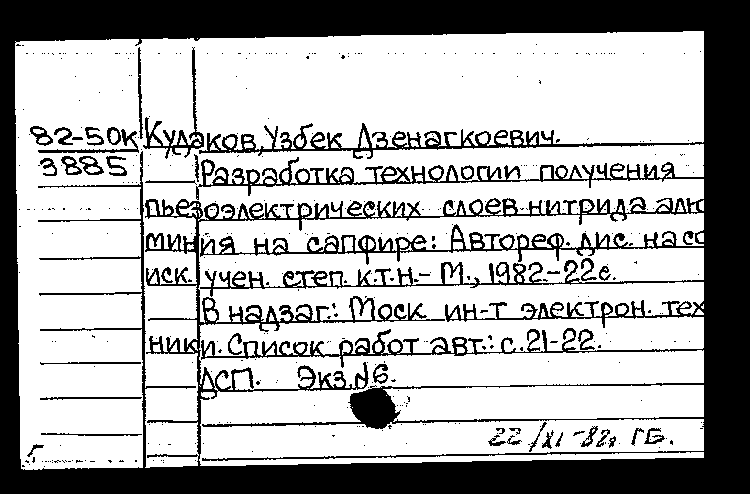 82-50к Кудаков, Узбек Дзенагкоевич.
3885 Разработка технологии получения
пьезоэлектрических слоев нитрида алю
миния на сапфире: Автореф. дис. на со
иск. учен. степ. к.т.н.- М., 1982.-22с.
В надзаг.: Моск. ин-т электрон. тех
ники. Список работ авт.: с.21-22.
ДСП. Экз.№6.
22/XI-82г. ГБ.